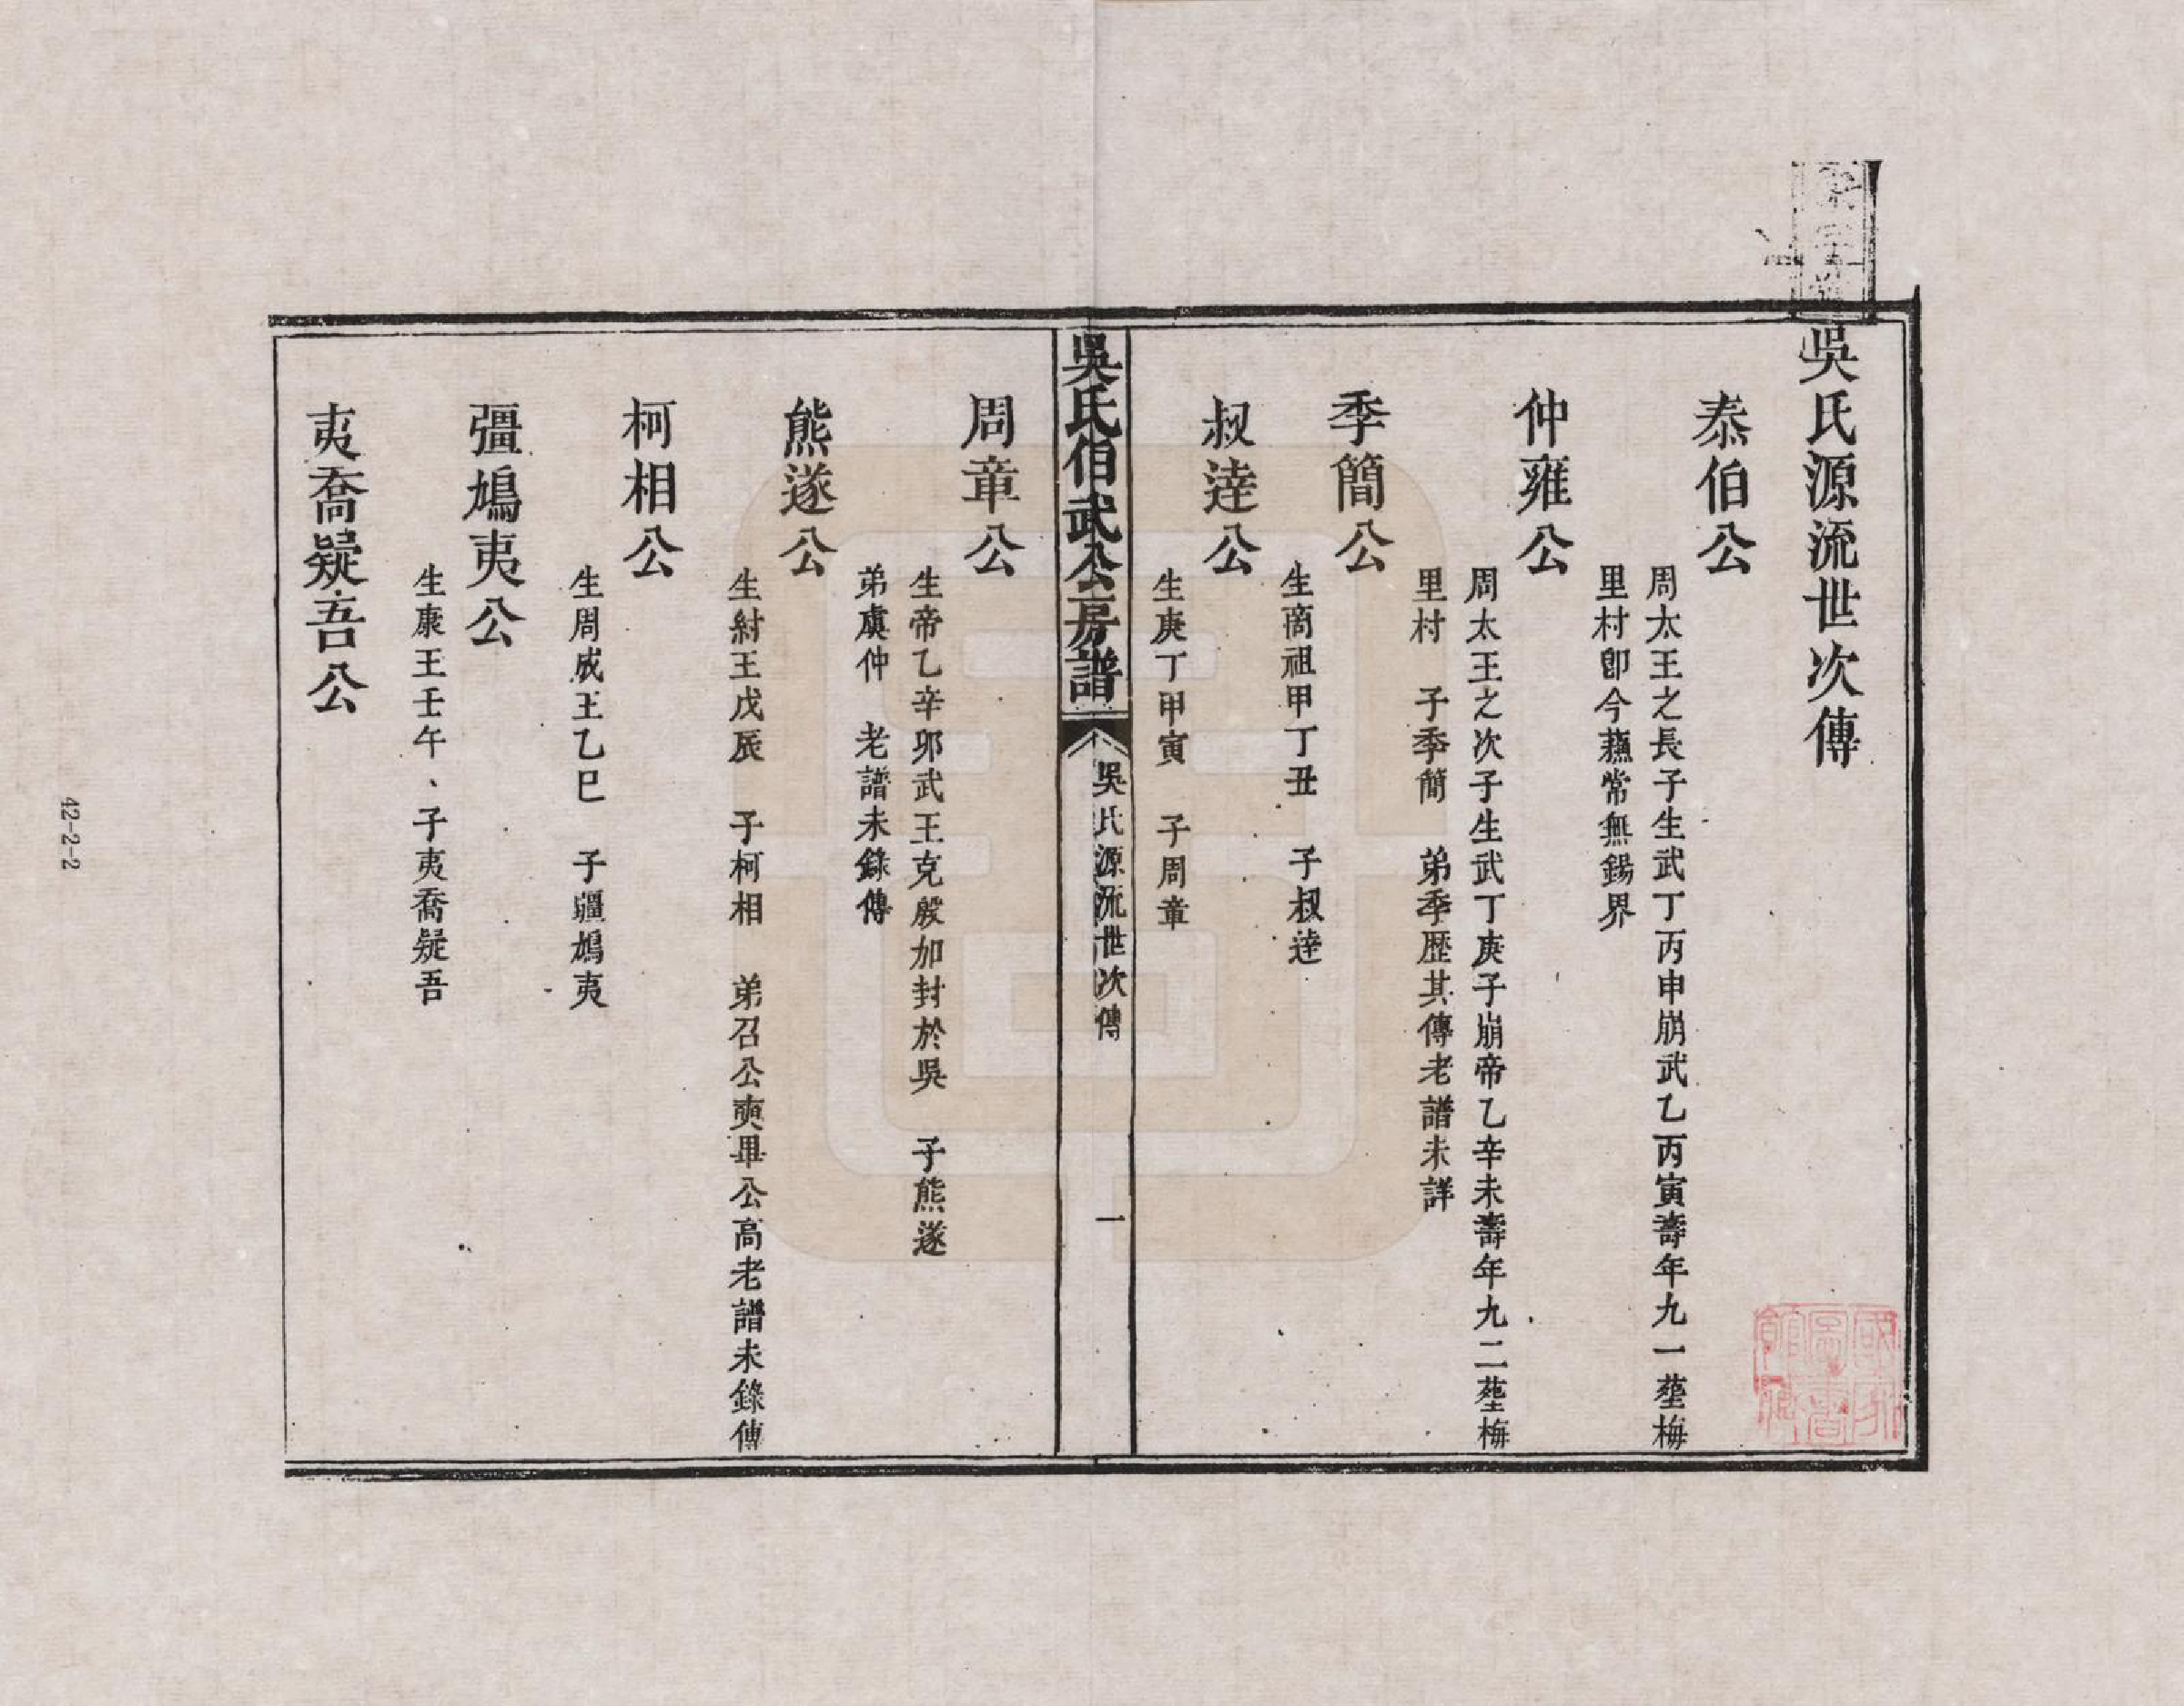 吳氏源流世次傳
泰伯公
周太王之長子生武丁丙申崩武乙丙寅壽年九一塟梅
里村卽今蘓常無錫界
仲雍公
周太王之次子生武丁庚子崩帝乙辛未壽年九二塟梅
里村 子季簡 弟季歷其傳老譜未詳
季簡公
生商祖甲丁丑 子叔逹
叔逹公
生庚丁甲寅 子周章
吳氏伯武公房譜
吳氏源流世次傳
一
周章公
生帝乙辛卯武王克殷加封於吳 子熊遂
弟虞仲 老譜未錄傳
熊遂公
生紂王戊辰 子柯相 弟召公奭畢公高老譜未錄傳
柯相公
生周成王乙巳 子疆鳩夷
彊鳩夷公
生康王壬午、子夷喬疑吾
夷喬疑吾公
42-2-2